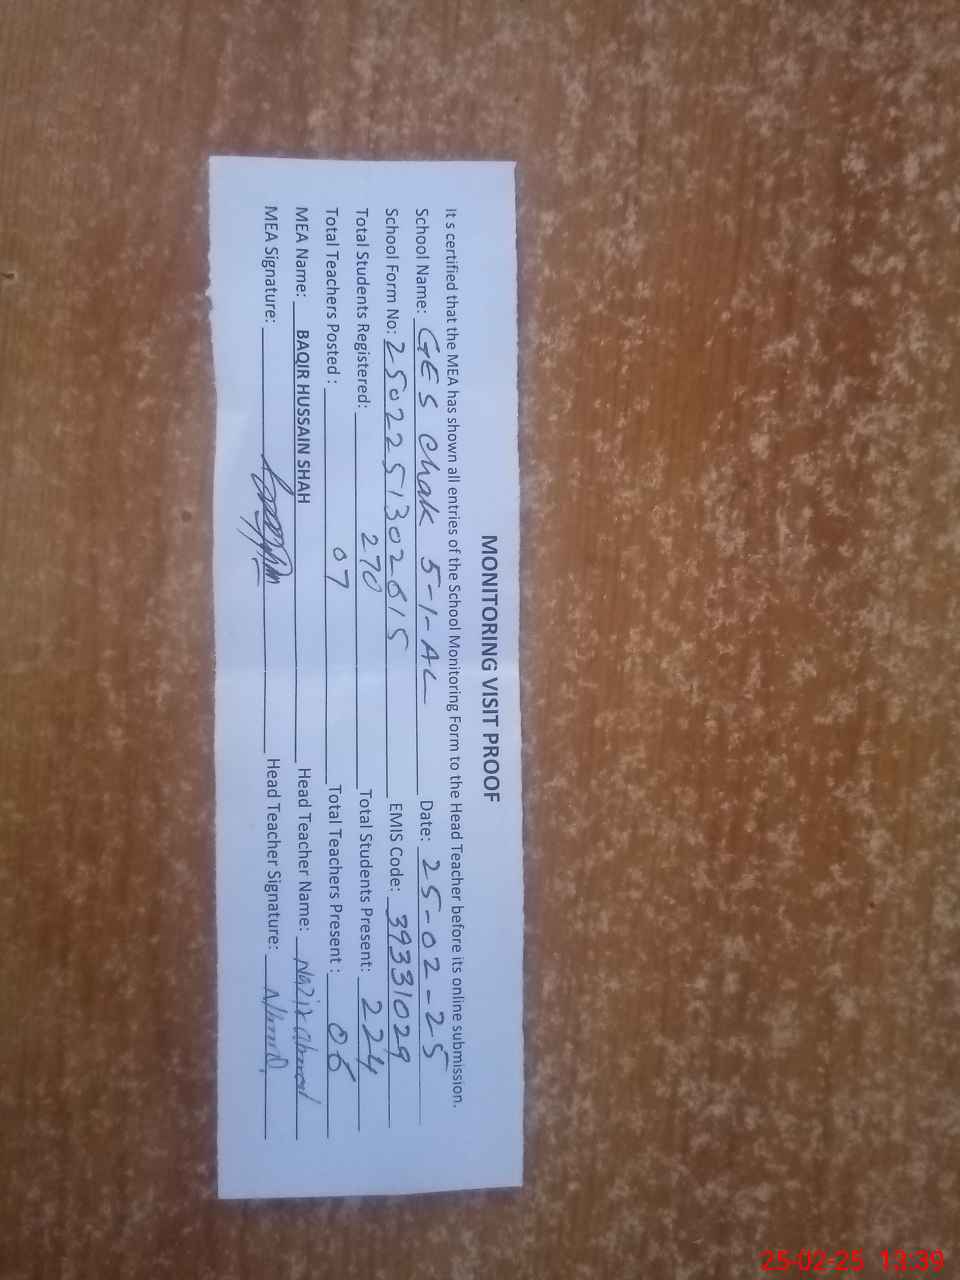 MONITORING VISIT PROOF
It s certified that the MEA has shown all entries of the School Monitoring Form to the Head Teacher before its online submission.
School Name: GES Chak 5-1-AL Date: 25-02-25
School Form No: 2502251302615 EMIS Code: 39331029
Total Students Registered: 270 Total Students Present: 224
Total Teachers Posted : 07 Total Teachers Present : 06
MEA Name: BAQIR HUSSAIN SHAH Head Teacher Name: Nazir Ahmad
MEA Signature: Head Teacher Signature:
25-02-25 13:39